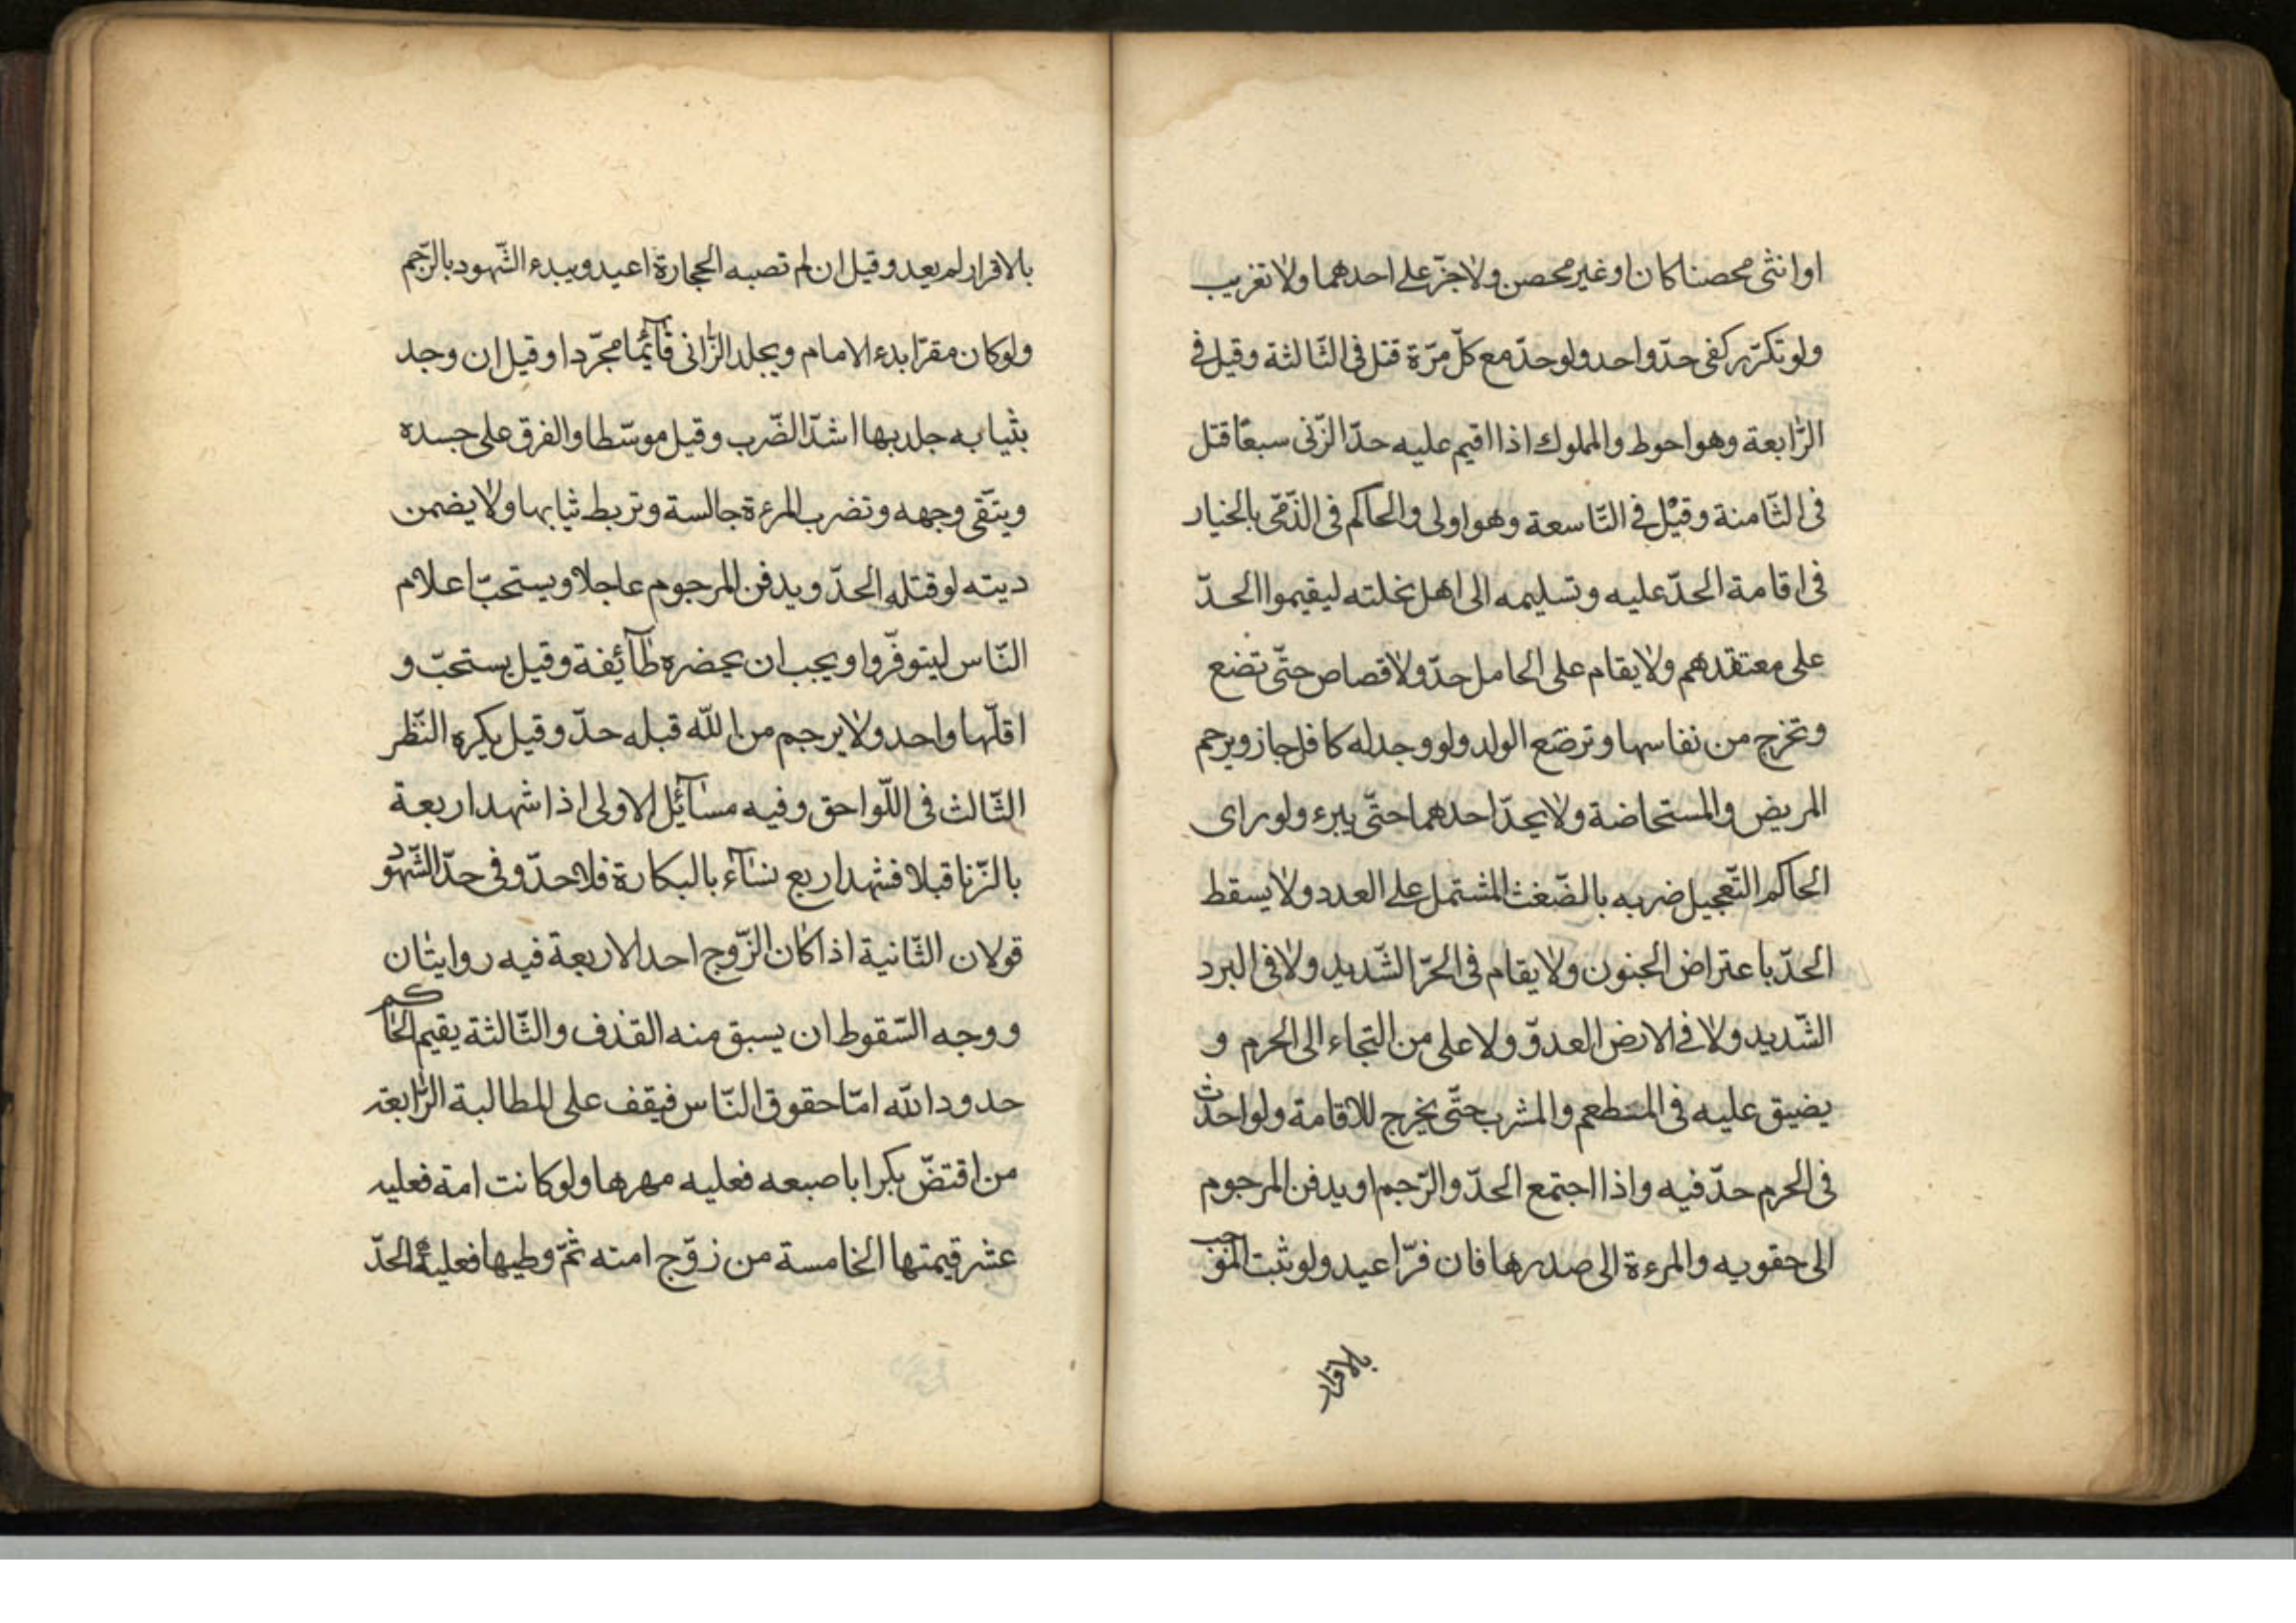 او انثى محصنا كان او غير محصن ولا جزّ على احدهما ولا تغريب
ولو تكرّر كفى حدّ واحد ولو حدّ مع كلّ مرّة قتل فى الثّالثة وقيل فى
الرّابعة وهو احوط والمملوك اذا اقيم عليه حدّ الزّنى سبعًا قتل
فى الثّامنة وقيل فى التّاسعة وهو اولى والحاكم فى الذّمّى بالخيار
فى اقامة الحدّ عليه وتسليمه الى اهل نحلته ليقيموا الحدّ
على معتقدهم ولا يقام على الحامل حدّ ولا قصاص حتّى تضع
وتخرج من نفاسها وترضع الولد ولو وجد له كافل جاز ويرجم
المريض والمستحاضة ولا يحدّ احدهما حتّى يبرء ولو راى
الحاكم التّعجيل ضربه بالضّغث المشتمل على العدد ولا يسقط
الحدّ باعتراض الجنون ولا يقام فى الحرّ الشّديد ولا فى البرد
الشّديد ولا فى الارض العدوّ ولا على من التجاء الى الحرم و
يضيق عليه فى المطعم والمشرب حتّى يخرج للاقامة ولو احدث
فى الحرم حدّ فيه واذا اجتمع الحدّ والرّجم او يدفن المرجوم
الى حقويه والمرءة الى صدرها فان فرّ اعيد ولو ثبت الموجب
بالاقرار
بالاقرار لم يعد وقيل ان لم تصبه الحجارة اعيد ويبدء الشّهود بالرّجم
ولو كان مقرّا بدء الامام ويجلد الزّانى قآئمًا مجرّدا وقيل ان وجد
بثيابه جلد بها اشدّ الضّرب وقيل موسّطا والفرق على جسده
ويتّقى وجهه وتضرب المرءة جالسة وتربط ثيابها ولا يضمن
ديته لو قتله الحدّ ويدفن المرجوم عاجلا ويستحبّ اعلام
النّاس ليتوفّروا ويجب ان يحضره طآئفة وقيل يستحبّ و
اقلّها واحد ولا يرجم من اللّه قبله حدّ وقيل يكره النّظر
الثّالث فى اللّواحق وفيه مسآئل الاولى اذا شهد اربعة
بالزّنا قبلا فشهد اربع نسآء بالبكارة فلا حدّ وفى حدّ الشّهود
قولان الثّانية اذا كان الزّوج احد الاربعة فيه روايتان
ووجه السّقوط ان يسبق منه القذف والثّالثة يقيم الحاكم
حدود اللّه امّا حقوق النّاس فيقف على المطالبة الرّابعة
من اقتضّ بكرا باصبعه فعليه مهرها ولو كانت امة فعليه
عشر قيمتها الخامسة من زوّج امته ثمّ وطيها فعليه الحدّ